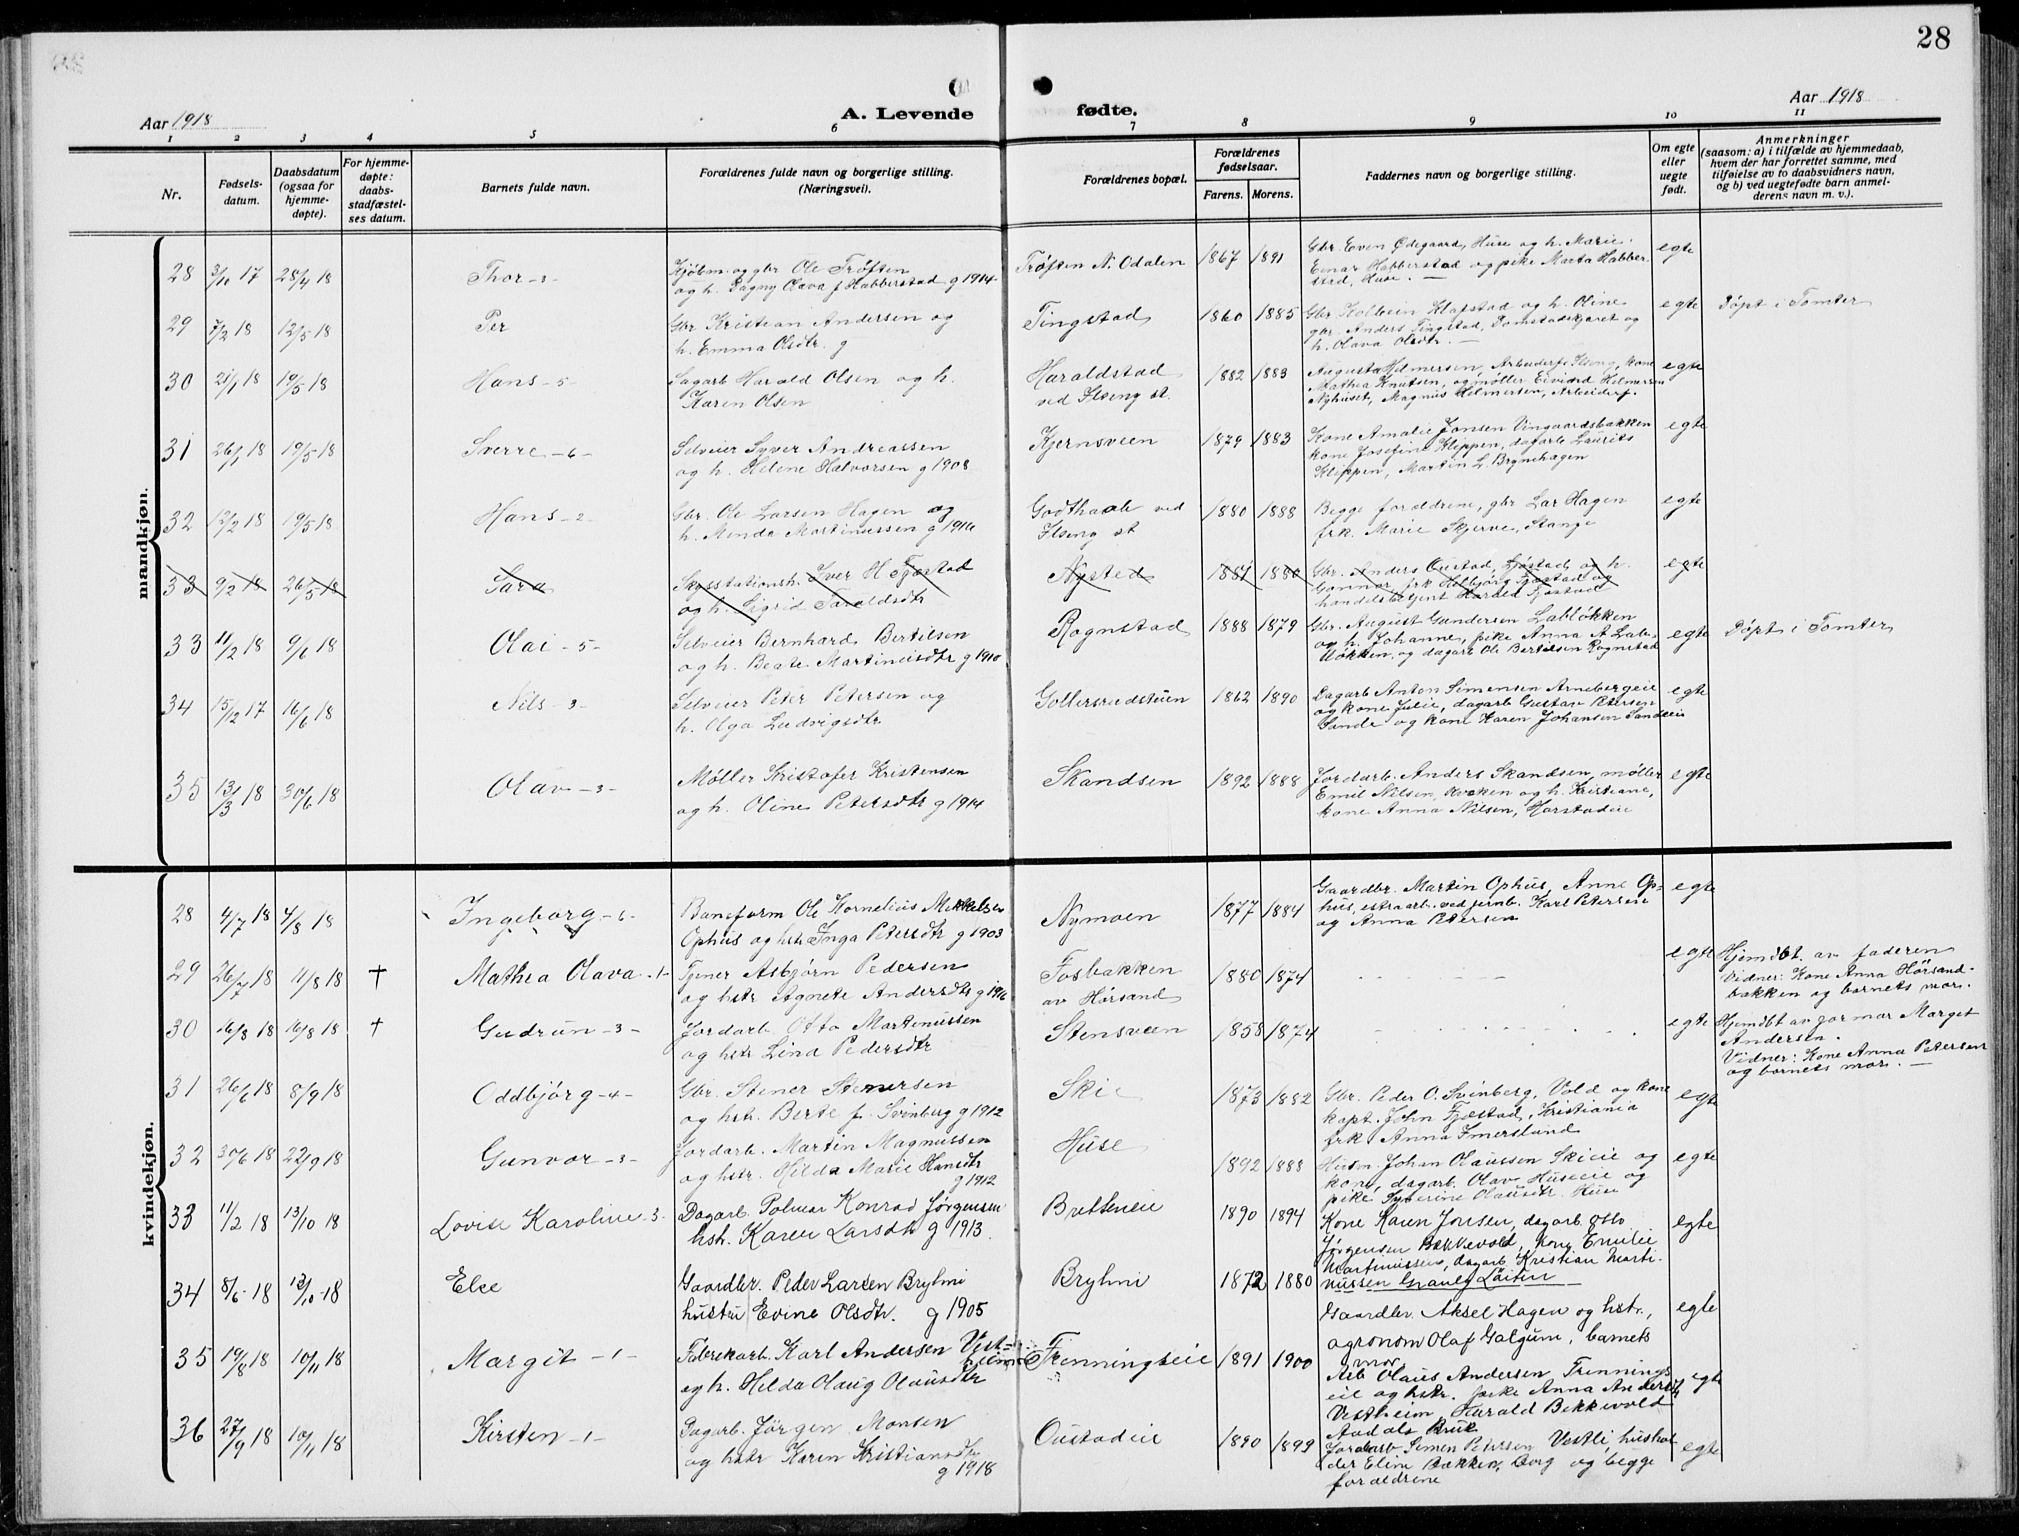 28
Aar 1918
A. Levende
fødte.
Aar 1918
1 2 3 4 5 6 7 8 9 10 11
Nr.
Fødsels-
datum.
Daabsdatum
(ogsaa for
hjemme-
døpte).
For hjemme-
døpte:
daabs-
stadfæstel-
ses datum.
Barnets fulde navn.
Forældrenes fulde navn og borgerlige stilling.
(Næringsvei).
Forældrenes bopæl.
Forældrenes
fødselsaar.
Farens. Morens.
Faddernes navn og borgerlige stilling.
Om egte
eller
uegte
født.
Anmerkninger
(saasom: a) i tilfælde av hjemmedaab,
hvem der har forrettet samme, med
tilføielse av to daabsvidners navn,
og b) ved uegtefødte barn anmel-
derens navn m. v.).
mandkjøn.
28 3/10 17 28/4 18 Thor -3-
Kjøbm. og gbr Ole Trøften
og h. Dagny Olava f Habberstad g 1914
Trøften N. Odalen 1867 1891
Gbr. Even Ødegaard, Huse og h. Marie.
Einar Habberstad og pike Marta Habber-
stad, Huse. egte
29 7/2 18 12/5 18 Per
Gbr Kristian Andersen og
h. Emma Olsdtr. g
Tingstad 1860 1885
Gbr Kolbein Klafstad og h. Oline
gbr. Anders Tingstad, Domstadkjæret og
h. Olava Olsdtr. egte Døpt i Tomter
30 21/1 18 19/5 18 Hans -5-
Dagarb Harald Olsen og h.
Karen Olsen
Haraldstad
ved Ilseng st. 1882 1883
Augusta Helmersen, Arbeiderf. Ilseng, kone
Mathea Knutsen, og møller Eivind Helmersen
Nyhuset, Magnus Helmersen, Arbeiderf. egte
31 26/1 18 19/5 18 Sverre -6-
Selveier Syver Andreassen
og h. Helene Halvorsen g 1908
Kjernsveen 1879 1883
Kone Amalie Jonsen Vingaardsbakken
kone Josefine Klippen, dagarb Laurits
Klippen, Martin L. Brynehagen egte
32 12/2 18 19/5 18 Hans -2-
Gbr. Ole Larsen Hagen og
h. Minda Martinussen g 1916
Godthaab ved
Ilseng st 1880 1888
Begge forældrene, gbr Lar Hagen
frk. Marie Skjerve, Stange egte
33 9/2 18 26/5 18 Sara
Skysstationsh. Iver H Fjæstad
og h. Sigrid Taraldsdtr
Nysted 1881 1880
Gbr. Anders Oustad, Fjæstad og h.
Gunnar, frk Helbjørg Fjæstad og
handelsbetjent Harald Fjæstad egte
33 11/2 18 9/6 18 Olai -5-
Selveier Bernhard Bertilsen
og h. Beate Martineisdtr g 1910
Rognstad 1888 1879
Gbr. August Gundersen Labløkken
og h. Johanne, pike Anna A. Lab-
løkken, og dagarb Ole Bertilsen Rognstad egte Døpt i Tomter
34 15/12 17 16/6 18 Nils -3-
Selveier Peter Petersen og
h. Olga Ludvigsdtr
Gollersrudstuen 1862 1890
Dagarb Anton Simensen Arnebergeie
og kone Julie, dagarb Gustav Petersen
Sande og kone Karen Johansen Sandeeie egte
35 13/3 18 30/6 18 Olav -3-
Møller Kristofer Kristensen
og h. Oline Petersdtr g 1914
Skandsen 1892 1888
Jordarb. Anders Skandsen, møller
Emil Nilsen, og h. Kristiane,
kone Anna Nilsen, Horstadeie egte
kvindekjøn.
28 4/7 18 4/8 18 Ingeborg -6-
Baneform Ole Kornelius Mikkelsen
Ophus og hstr Inga Petersdtr g 1903
Nymoen 1877 1884
Gaardbr. Martin Ophus, Anne Op-
hus, extraarb. ved jernb. Karl Petersen
og Anna Petersen egte
29 26/7 18 11/8 18 † Mathea Olava -1-
Tjener Asbjørn Pedersen
og hstr Agnete Andersdtr g 1916
Fosbakken
av Hørsand 1880 1874 egte
Hjemdbt. av faderen
Vidner: Kone Anna Hørsand-
bakken og barnets mor.
30 16/8 18 16/8 18 † Gudrun -3-
Jordarb Otto Martinussen
og hstr Lina Pedersdtr
Stensveen 1858 1874 egte
Hjemdbt av jormor Marget
Andersen.
Vidner: Kone Anna Petersen
og barnets mor.
31 26/6 18 8/9 18 Oddbjørg -4-
Gbr. Stener Stenersen
og hstr. Berte f. Svinberg g 1912
Skie 1873 1882
Gbr. Peder O. Svinberg, Vold og kone
kapt. John Fjæstad, Kristiania
frk Anna Imerslund egte
32 30/6 18 22/9 18 Gunvor -3-
Jordarb. Martin Magnussen
og hstr. Hilda Marie Hansdtr
g 1912
Huse 1892 1888
Husm. Johan Olaussen Skieie og
kone, dagarb. Olav Huseeie og
pike Syverine Olausdtr. Huse egte
33 11/2 18 13/10 18 Lovise Karoline -3-
Dagarb Polmar Konrad Jørgensen
hstr. Karen Larsdtr g 1913
Bretteneie 1890 1894
Kone Karen Jonsen, dagarb. Otto
Jørgensen Bekkevold, kone Emilie
Martinussen, dagarb Kristian Marti-
nussen Løiten egte
34 8/6 18 13/10 18 Else
Gaardbr. Peder Larsen Bryhni
hustru Evine Olsdtr. g 1905
Bryhni 1872 1880
Gaardbr Aksel Hagen og hstr,
agronom Olaf Galgum, barnets
mor egte
35 19/8 18 10/11 18 Margit -1-
Fabrikarb. Karl Andersen Vest-
heim
og h. Hilda Olaug Olausdtr
Frenningseie 1891 1900
Arb Olaus Andersen Frennings-
eie og hstr. pike Anna Andersdtr
Vestheim Harald Bekkevold
Aadals Bruk egte
36 27/9 18 10/11 18 Kirsten -1-
Dagarb. Jørgen Monsen
og hstr Karen Kristiansdtr
g 1918
Oustadeie 1890 1899
Jordarb Simen Petersen Vestli, hushol-
der Eline Bakken, Borg og begge
forældrene egte